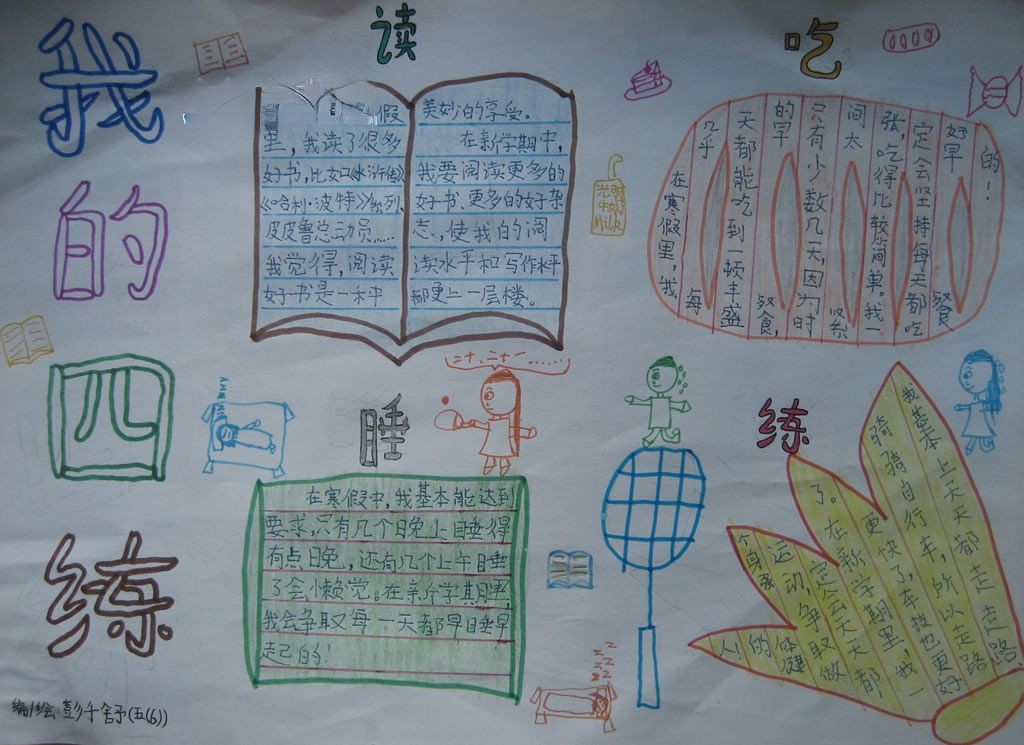 我
的
四
练
读
假
里，我读了很多
好书，比如《水浒传》
《哈利·波特》系列、
皮皮鲁总动员……
我觉得，阅读
好书是一种
美妙的享受。
在新学期中，
我要阅读更多的
好书、更多的好杂
志，使我的阅
读水平和写作水平
都更上一层楼。
吃
在寒假里，我
几乎每
天都能吃到一顿丰盛
的早餐，
只有少数几天，因为时
间太紧
张，吃得比较简单。我一
定会坚持每天都吃
好早餐
的！
Milk
二十、二十一……
睡
在寒假中，我基本能达到
要求，只有几个日晚上睡得
有点日晚，还有几个上午睡
了会小懒觉。在新学期里，
我会争取每一天都早睡早
起的！
zzz
练
我基本上天天都走走路、
骑骑自行车，所以走路
更快了，车技也更好
了。在新学期里，我一
定会天天都
运动，争取做
个身强体健
的人！
编/绘：彭千舒（五(6)）